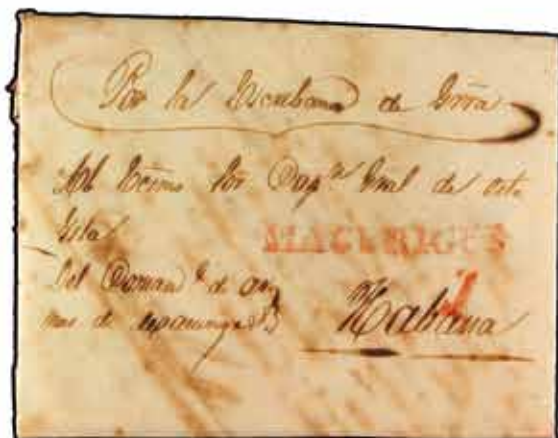 Por la Escribana de Grra
Al Ecsmo Sor Capn Gral de esta
Ysla
MACURIGES
Del Coman.te de ar
mas de
Habana